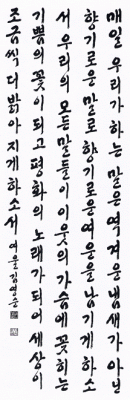 매일우리가하는말은역겨운냄새가아닌
향기로운말로향기로운여운을남기게하소
서우리의모든말들이이웃의가슴에꽂히는
기쁨의꽃이되고평화의노래가되어세상이
조금씩더밝아지게하소서 여울김영순